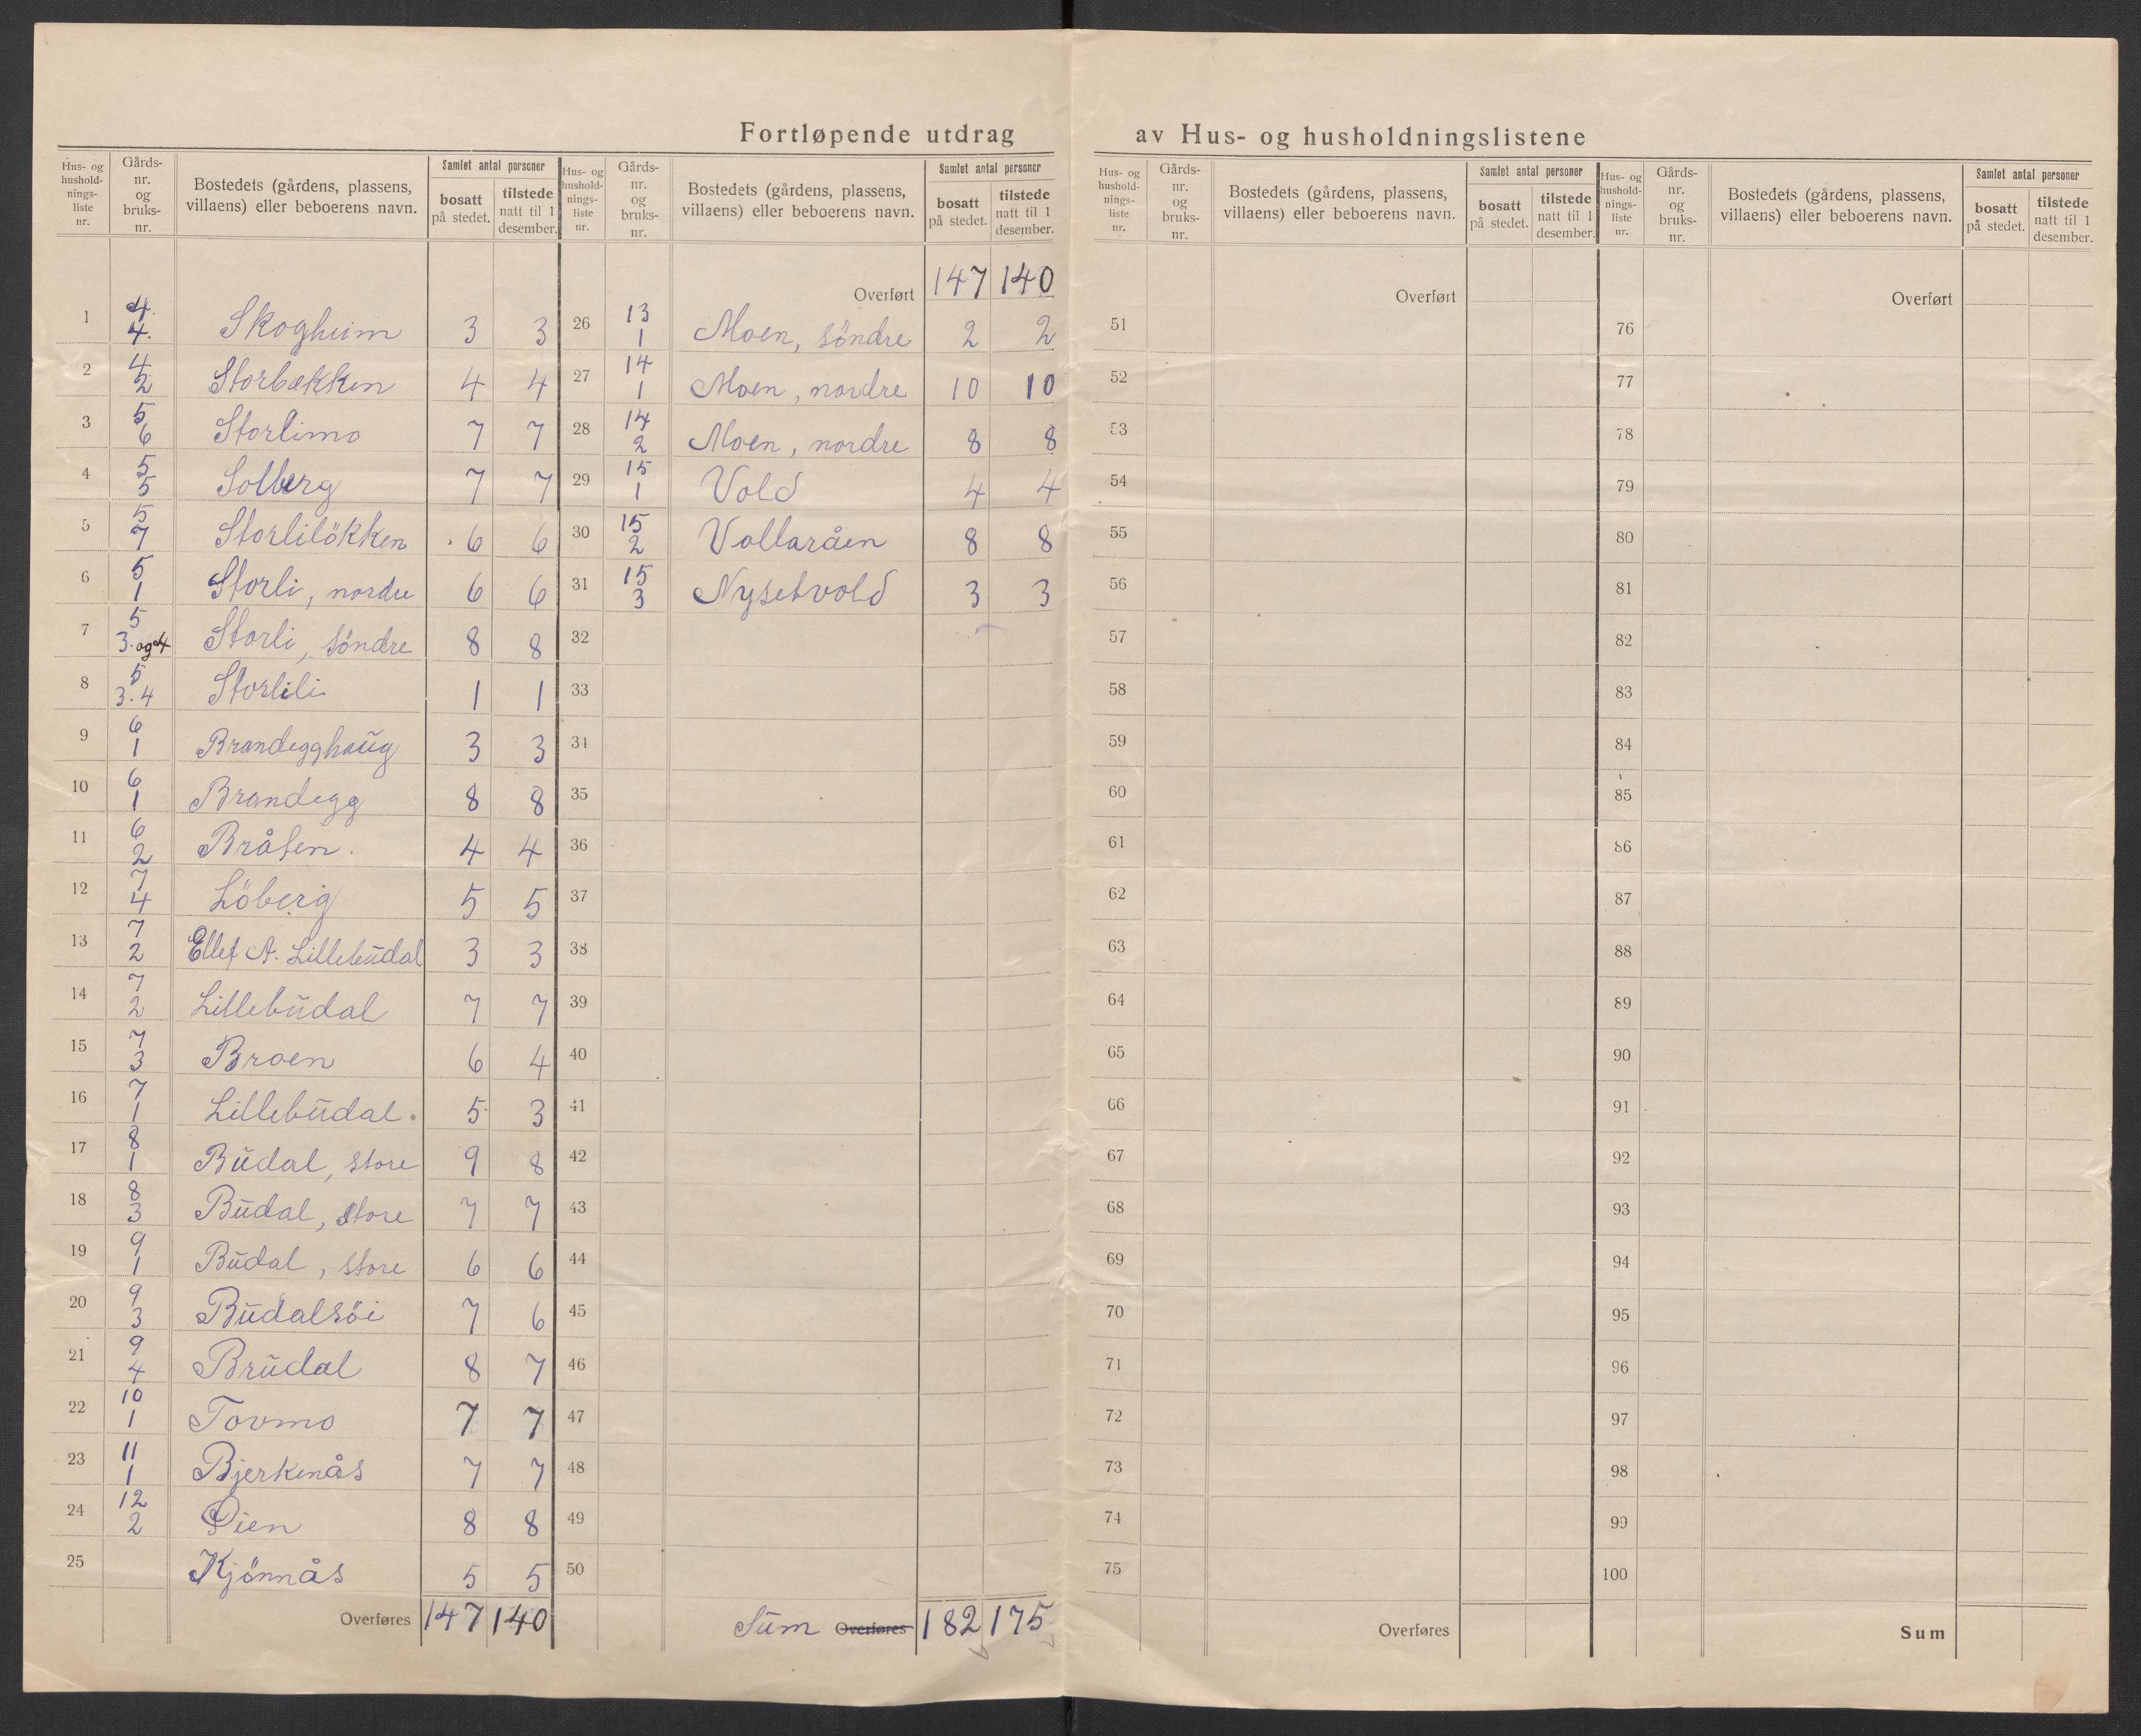 Fortløpende utdrag av Hus- og husholdningslistene
Hus- og husholdnings-liste nr. | Gårds-nr. og bruks-nr. | Bostedets (gårdens, plassens, villaens) eller beboerens navn. | Samlet antal personer | bosatt på stedet. | tilstede natt til 1 desember.
1 4. 4. Skogheim 3 3
2 4 2 Storbækken 4 4
3 5 6 Storlimo 7 7
4 5 5 Solberg 7 7
5 5 7 Storlilökken 6 6
6 5 1 Storli, nordre 6 6
7 5 3 og 4 Storli, söndre 8 8
8 5 3.4 Storlili 1 1
9 6 1 Brandegghaug 3 3
10 6 1 Brandegg 8 8
11 6 2 Bråten. 4 4
12 7 4 Löberg 5 5
13 7 2 Ellef A. Lillebudal 3 3
14 7 2 Lillebudal 7 7
15 7 3 Broen 6 4
16 7 1 Lillebudal. 5 3
17 8 1 Budal, store 9 8
18 8 3 Budal, store 7 7
19 9 1 Budal, store 6 6
20 9 3 Budalsöi 7 6
21 9 4 Brudal 8 7
22 10 1 Tovmo 7 7
23 11 1 Bjerkenås 7 7
24 12 2 Øien 8 8
25 Kjönnås 5 5
Overføres 147 140
Hus- og husholdnings-liste nr. | Gårds-nr. og bruks-nr. | Bostedets (gårdens, plassens, villaens) eller beboerens navn. | Samlet antal personer | bosatt på stedet. | tilstede natt til 1 desember.
Overført 147 140
26 13 1 Moen, söndre 2 2
27 14 1 Moen, nordre 10 10
28 14 2 Moen, nordre 8 8
29 15 1 Vold 4 4
30 15 2 Vollaråen 8 8
31 15 3 Nysetvold 3 3
32
33
34
35
36
37
38
39
40
41
42
43
44
45
46
47
48
49
50
Sum Overføres 182 175
Hus- og husholdnings-liste nr. | Gårds-nr. og bruks-nr. | Bostedets (gårdens, plassens, villaens) eller beboerens navn. | Samlet antal personer | bosatt på stedet. | tilstede natt til 1 desember.
Overført
51
52
53
54
55
56
57
58
59
60
61
62
63
64
65
66
67
68
69
70
71
72
73
74
75
Overføres
Hus- og husholdnings-liste nr. | Gårds-nr. og bruks-nr. | Bostedets (gårdens, plassens, villaens) eller beboerens navn. | Samlet antal personer | bosatt på stedet. | tilstede natt til 1 desember.
Overført
76
77
78
79
80
81
82
83
84
85
86
87
88
89
90
91
92
93
94
95
96
97
98
99
100
Sum